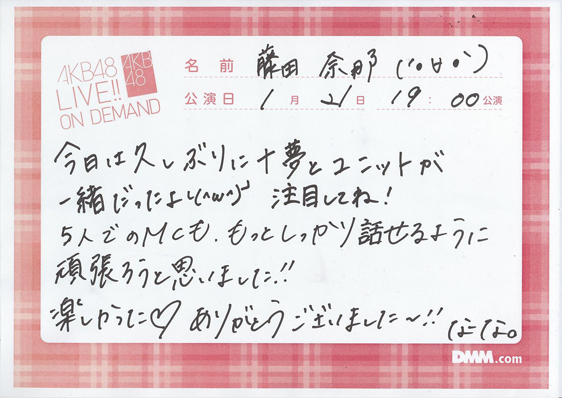 AKB48
LIVE!!
ON DEMAND
AKB
48
名前 藤田 奈那 (°o°)
公演日 1月21日 19:00公演
今日は久しぶりに十夢とユニットが
一緒だったよ\(^w^)/ 注目してね!
5人でのMCも、もっとしっかり話せるように
頑張ろうと思いました!!
楽しかった♡ ありがとうございました〜!! なーな。
DMM.com